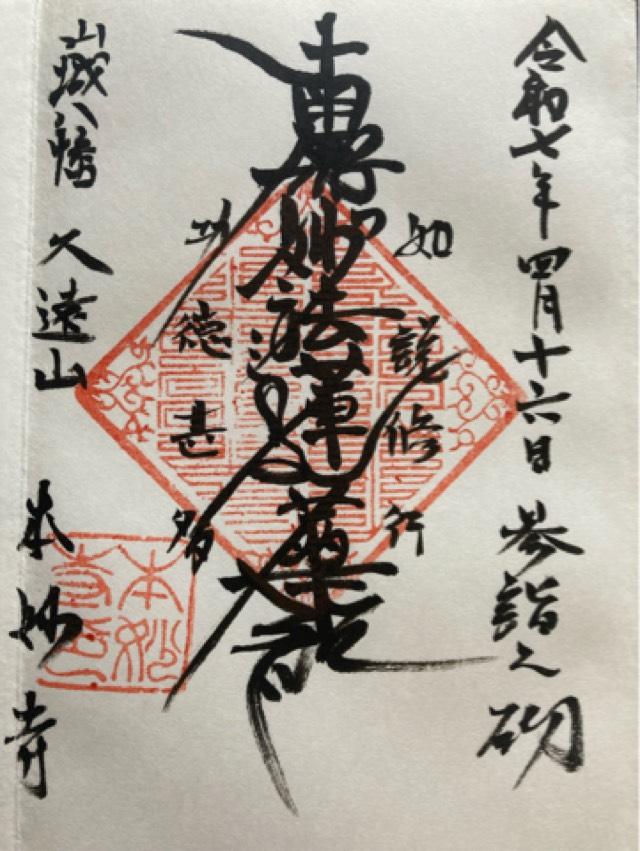 令和七年四月十六日 参詣之砌
如説修行
南無妙法蓮華経
功徳甚多
山城八幡 久遠山 本妙寺